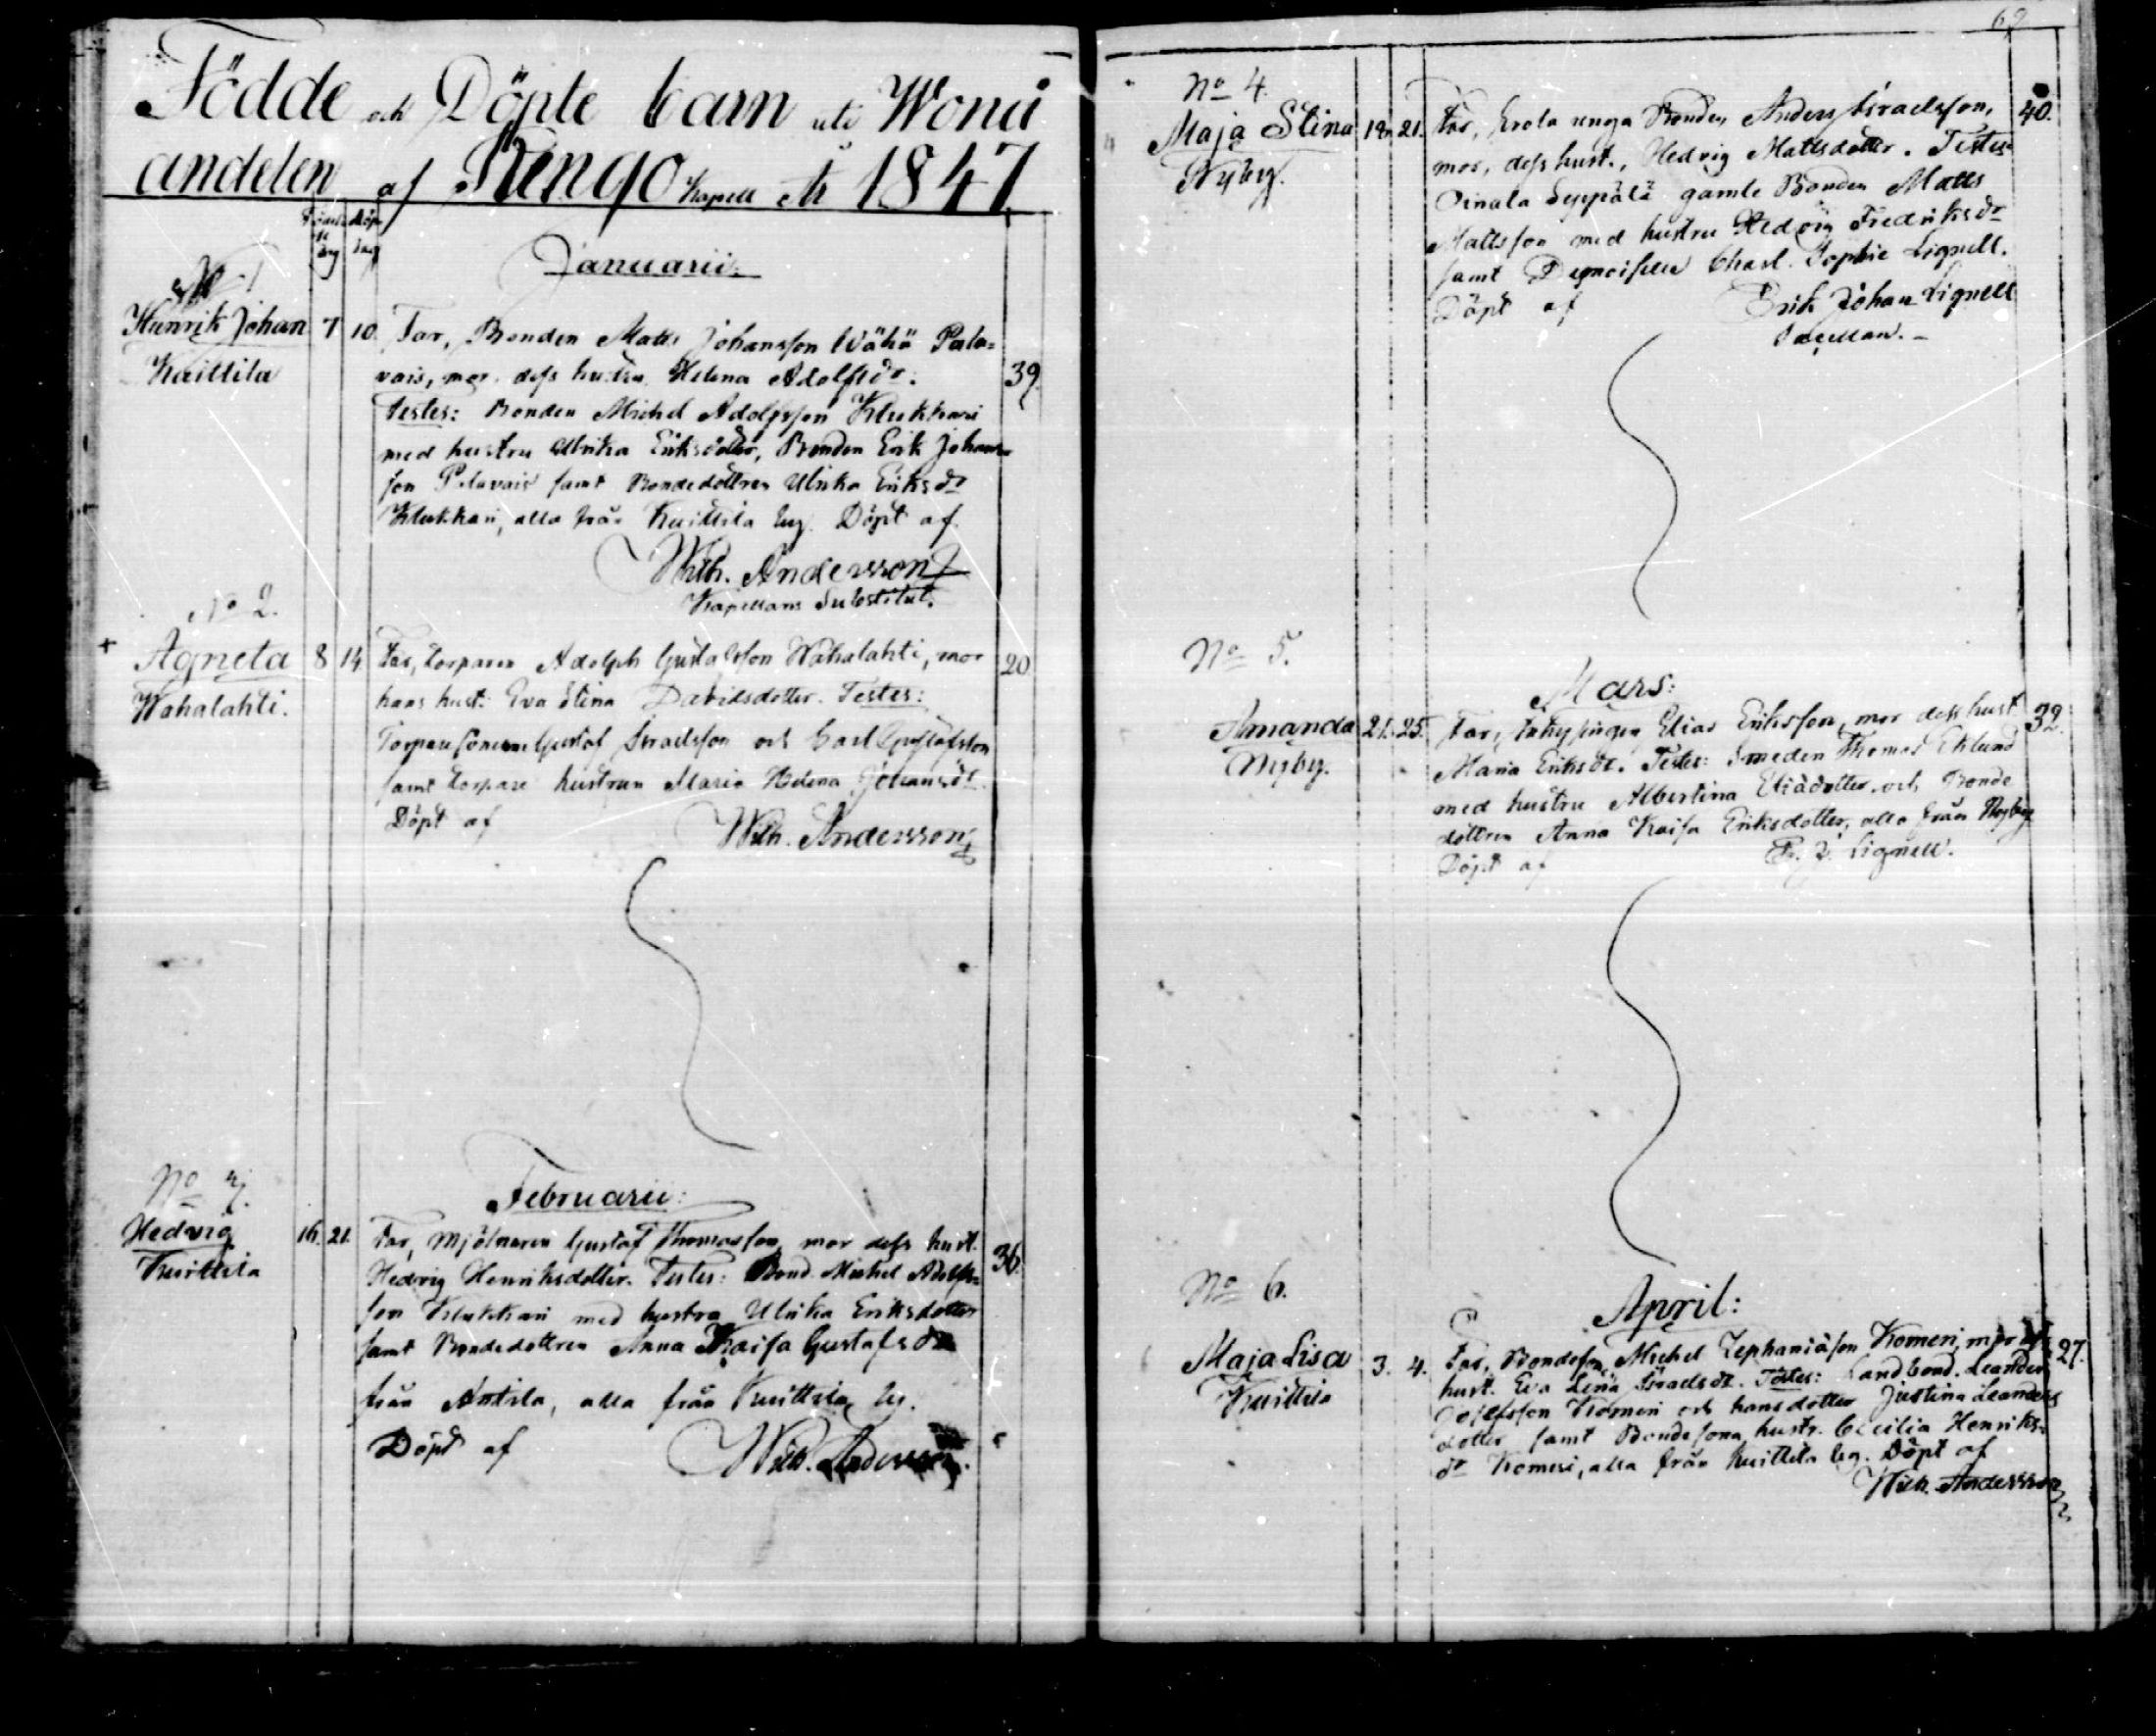 Födde och Döpte barn uti Wonå
andelen af Rengo Kapell År 1847
Januarii:
Henrik Johan 7 10. Far, Bonden Matts Johansson Wähä Pala=
Kuittila
vais, mor, dess hustru Helena Adolfsdr. 39.
Testes: Bonden Michel Adolfsson Klukkari
med hustru Ulrika Eriksdotter, Bonden Erik Johans=
son Palavais samt Bondedottren Ulrika Eriksdr
Klukkari, alla från Kuittila by. Döpt af
Wilh. Andersson
Kapellans Substitut.
No 2.
Agneta 8 14 Far, torparen Adolph Gustafsson Wahalahti, mor 20
Wahalahti.
hans hust. Eva Stina Davidsdotter. Testes:
Torparesönerne Gustaf Israelsson och Carl Gustafsson
samt torpare hustrun Maria Helena Johansdr.
Döpt af Wilh. Andersson
No 3.
Februarii:
Hedvig 16. 21. Far, Mjölnaren Gustaf Thomasson, mor dess hust. 36.
Kuittila
Hedvig Henriksdotter. Testes: Bond. Michel Adolphs=
son Klukkari med hustru Ulrika Eriksdotter
samt Bondedottren Anna Kaisa Gustafsdr
från Anttila, alla från Kuittila by.
Döpt af Wilh. Andersson.
69
No 4.
Maja Stina 18 21. Far, unga Bonden Anders Israelsson, 40.
Nyby.
mor, dess hust., Hedvig Mattsdotter. Testes:
Oinala Seppälä gamle Bonden Matts
Mattsson med hustru Hedvig Fredriksdr
samt Demoiselle Charl. Sophie Lignell.
Döpt af Erik Johan Lignell
No 5.
Mars:
Amanda 21. 25. Far, Inhysingen Elias Eriksson, mor dess hust. 32.
Nyby.
Maria Eriksdr. Testes: Smeden Thomas Eklund
med hustru Albertina Eliædotter, och Bonde
dottren Anna Kaisa Eriksdotter, alla från Nyby
Döpt af Er. J. Lignell.
No 6.
April:
Maja Lisa 3. 4. Far, Bondeson Michel Zephaniæson Komeri, mor 27.
Kuittila
hust. Eva Lena Israelsdr. Testes: Landbond. Leander
Josefsson Komeri och hans dotter Justina Leanders
dotter samt Bondesons hustr. Cecilia Henriks=
dr Komeri, alla från Kuittila by. Döpt af
Wilh. Andersson